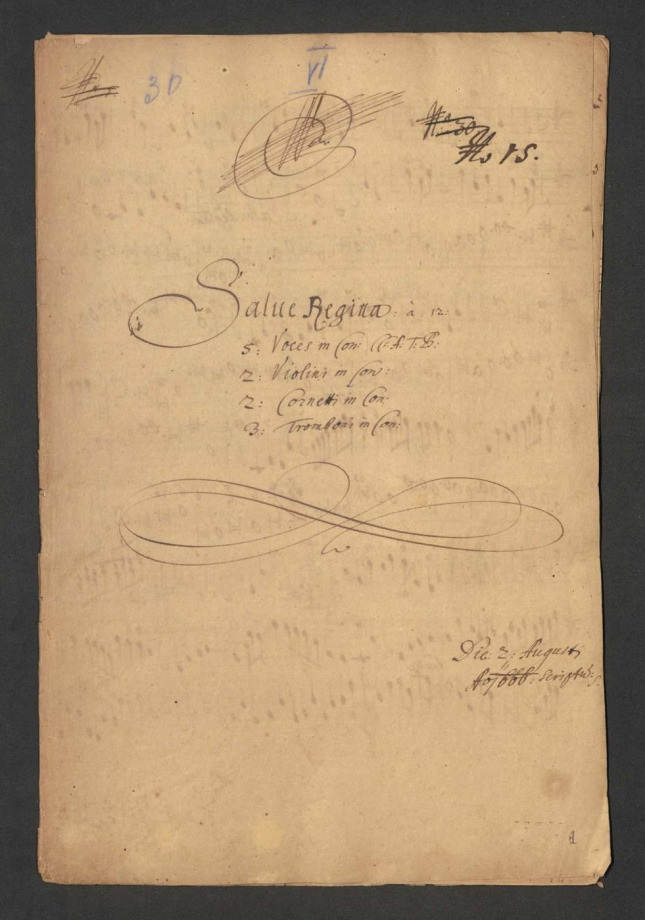 No.
30
VI
No. 30
No 15.
Salue Regina: à 12:
5: Voces in Con: C.C.A:T:B:
2: Violini in Con:
2: Cornetti in Con:
3: Tromboni in Con:
Die 2: August
Ao 1666. Scriptū:
1